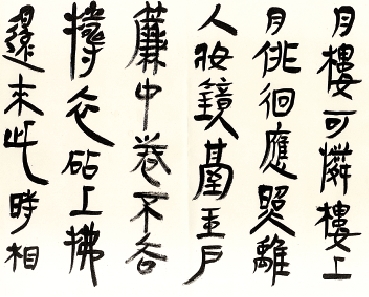 月樓可憐樓上
月徘徊應照離
人妝鏡臺玉戶
簾中卷不去
擣衣砧上拂
還來此時相